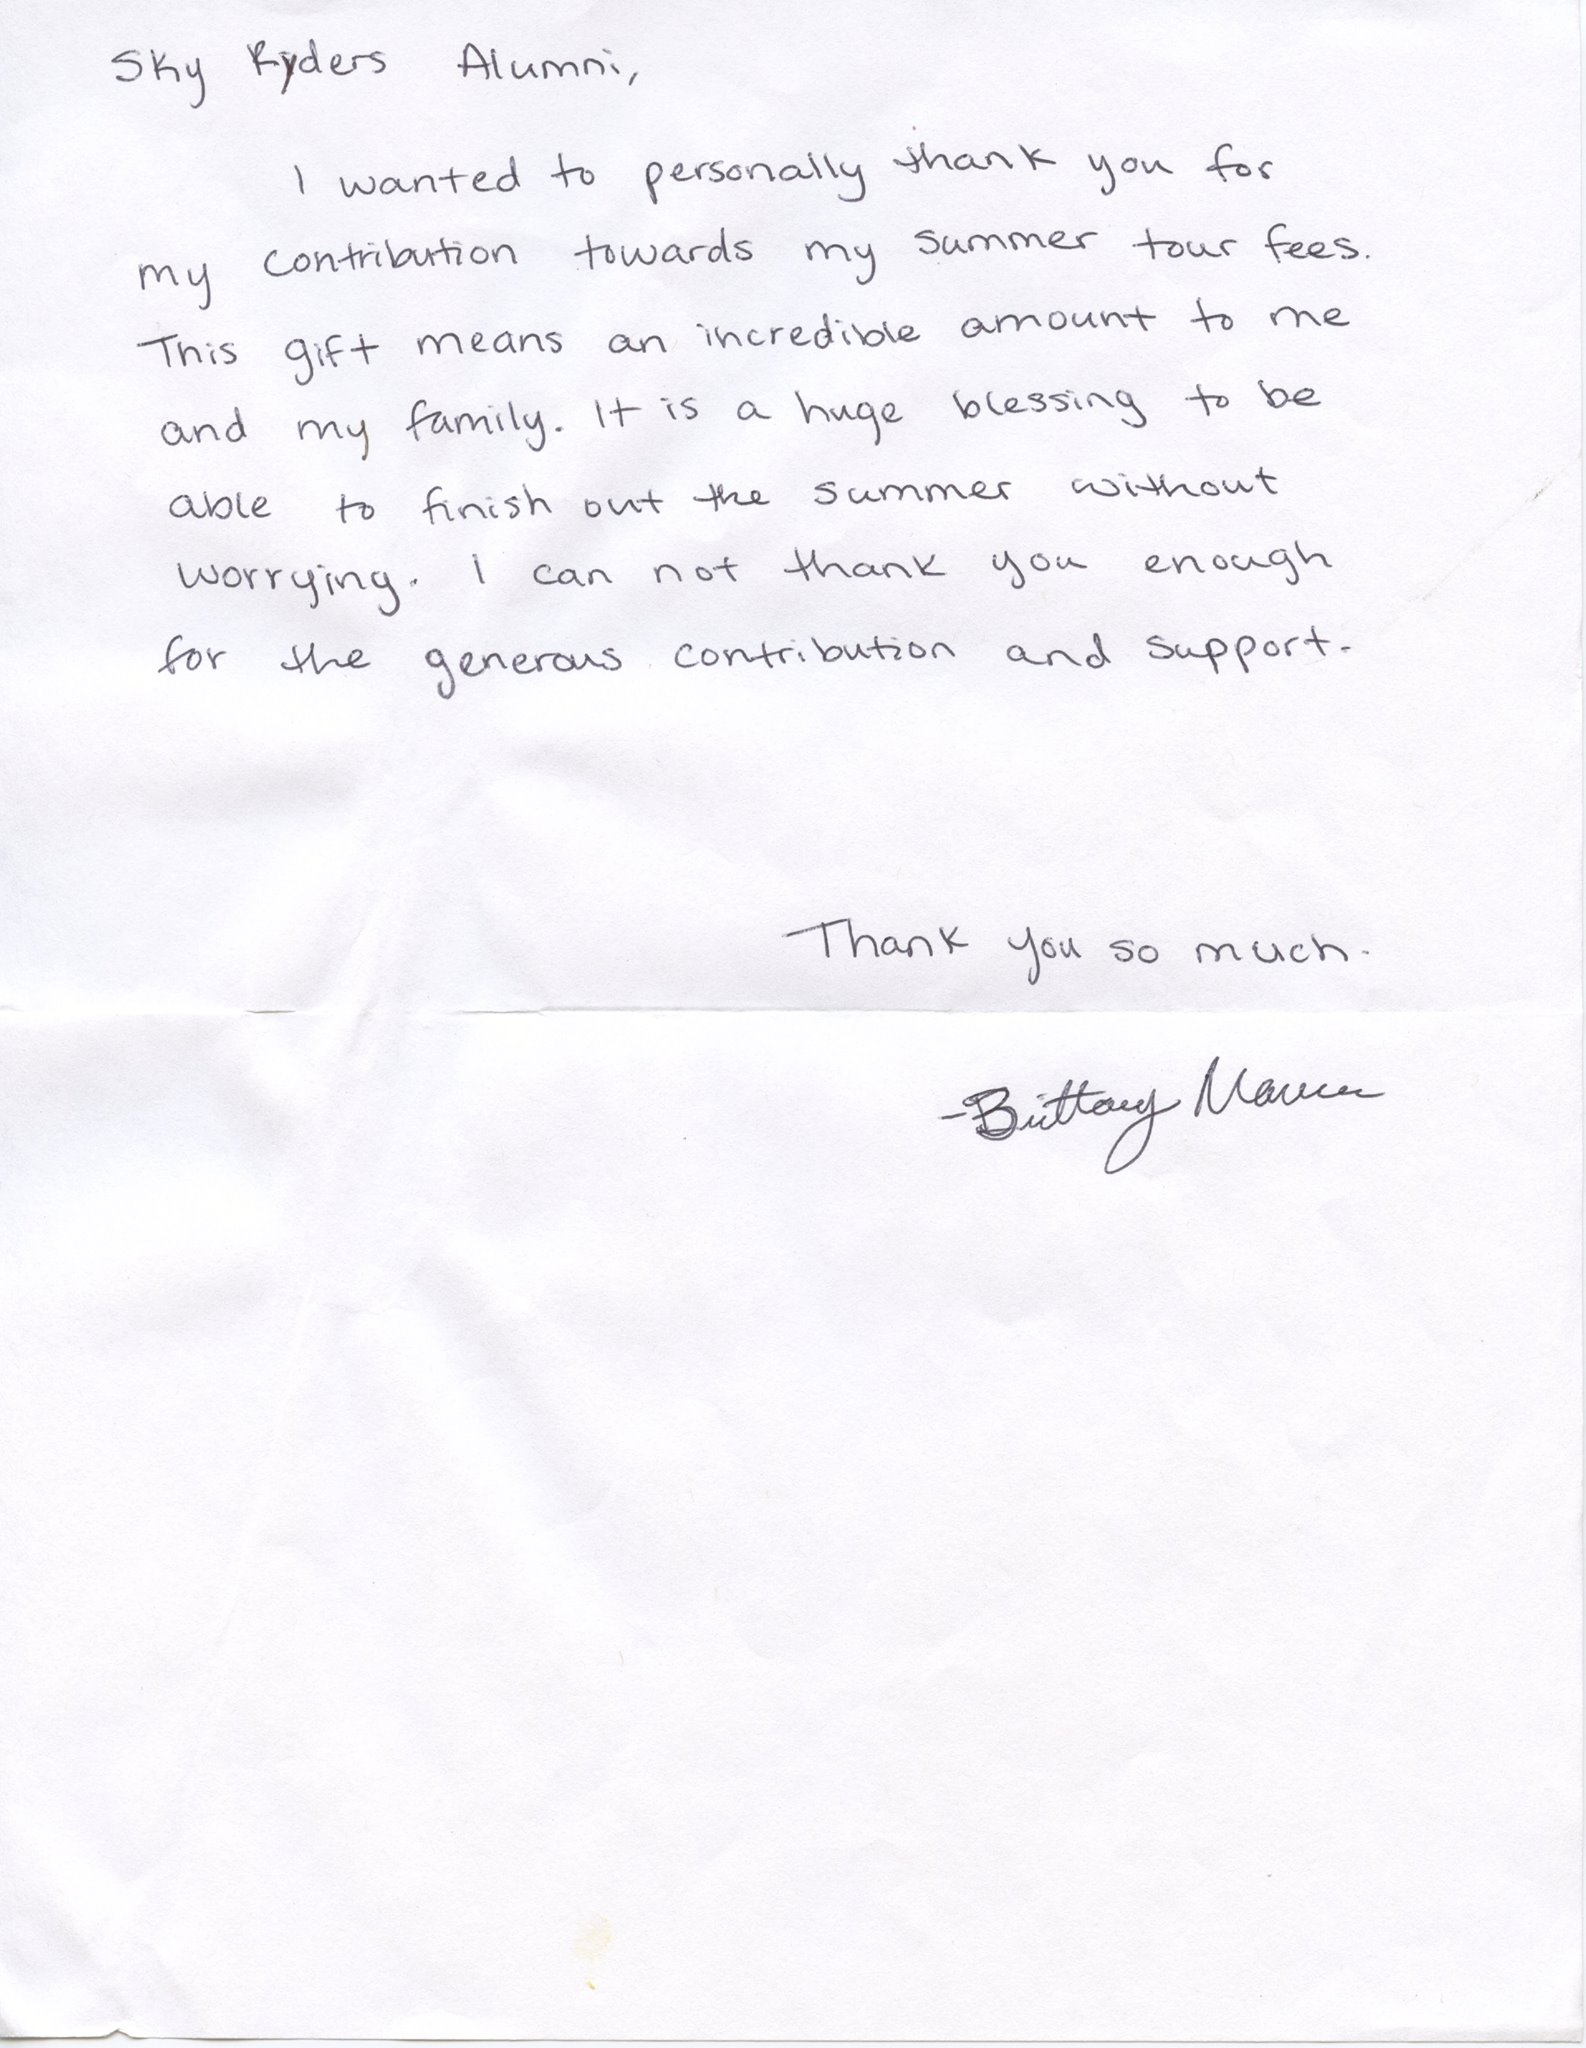 Sky Ryders Alumni,
I wanted to personally thank you for
my contribution towards my summer tour fees.
This gift means an incredible amount to me
and my family. It is a huge blessing to be
able to finish out the summer without
worrying. I can not thank you enough
for the generous contribution and support.
Thank you so much.
-Brittany